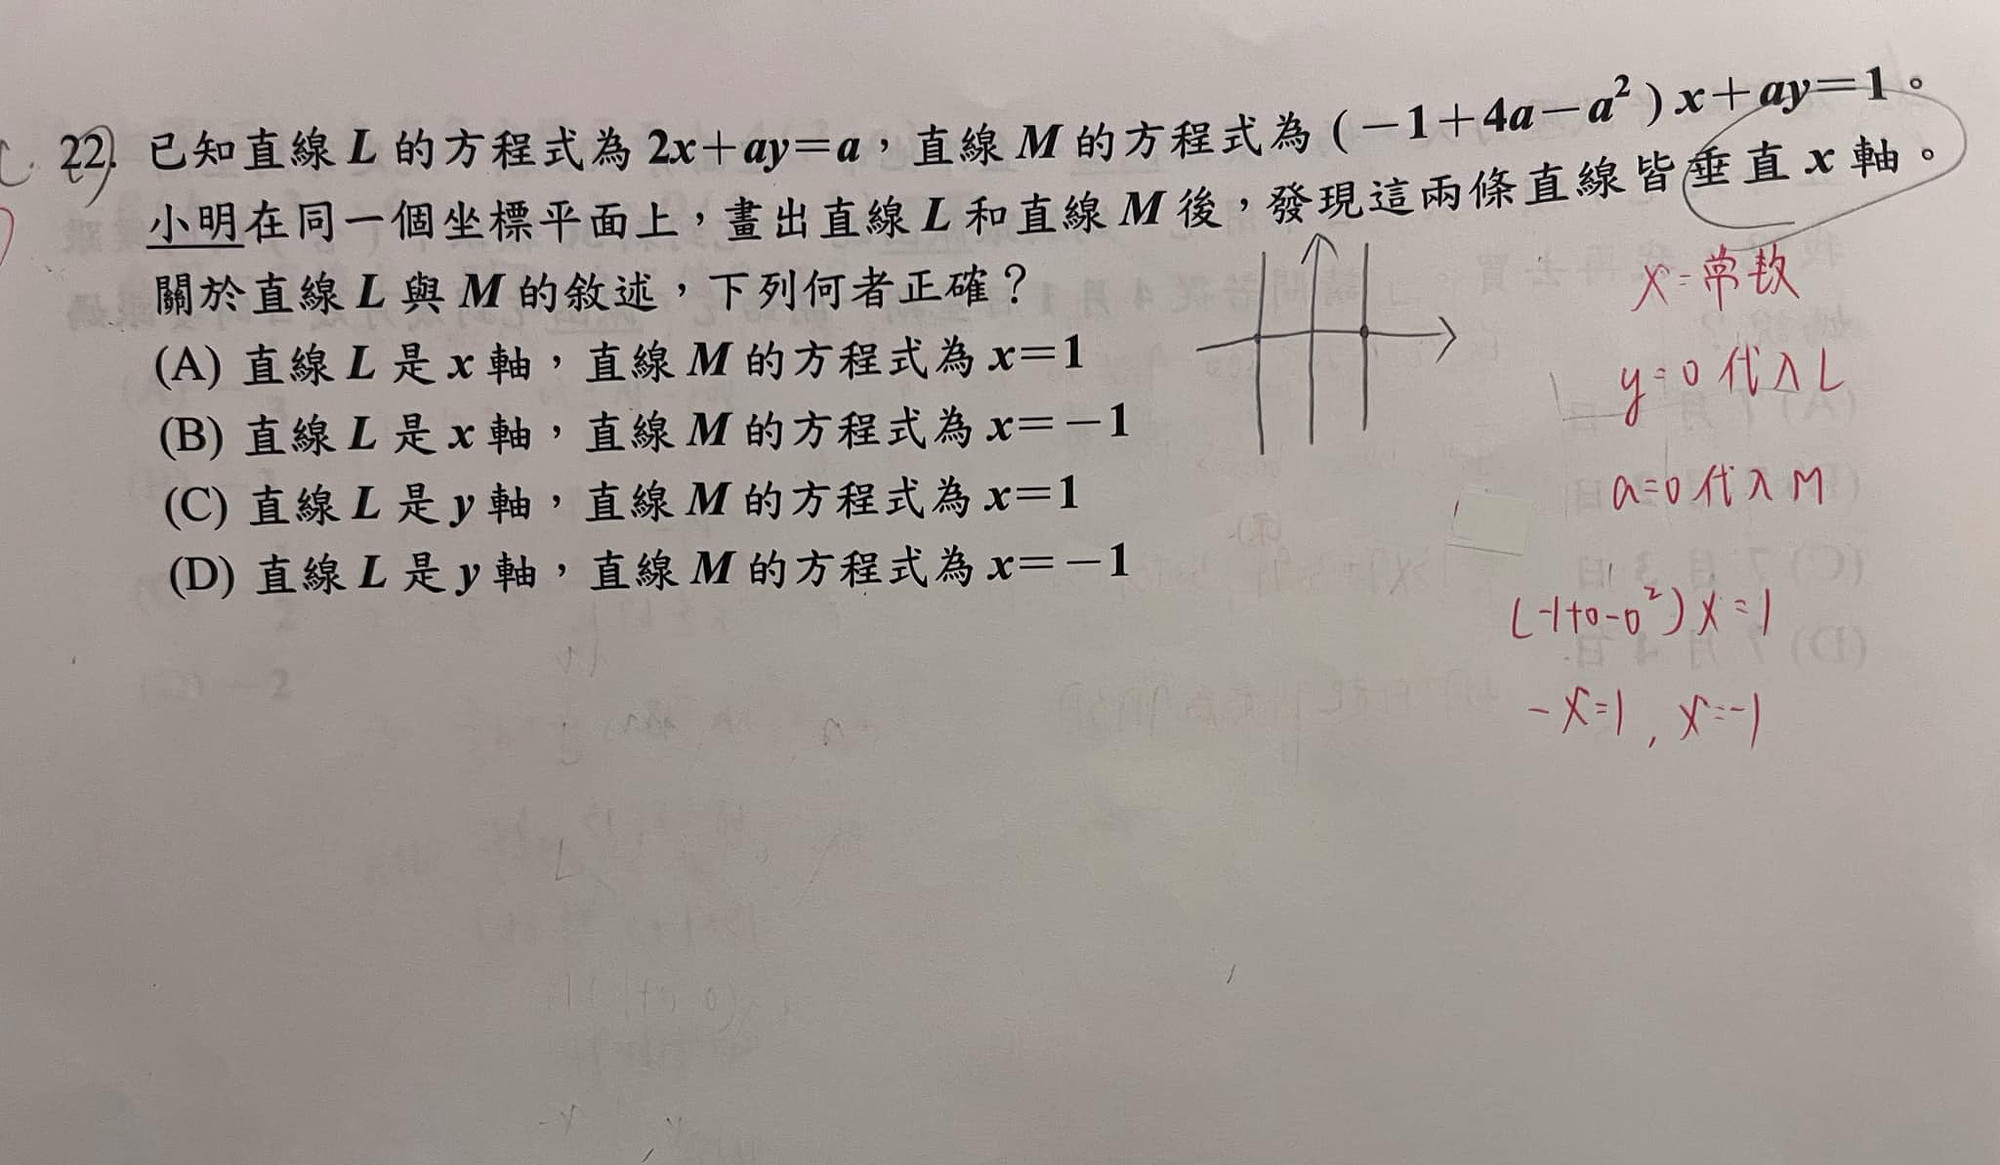 22. 已知直線 L 的方程式為 2x+ay=a，直線 M 的方程式為 (-1+4a-a²)x+ay=1。
小明在同一個坐標平面上，畫出直線 L 和直線 M 後，發現這兩條直線皆垂直 x 軸。
關於直線 L 與 M 的敘述，下列何者正確？
(A) 直線 L 是 x 軸，直線 M 的方程式為 x=1
(B) 直線 L 是 x 軸，直線 M 的方程式為 x=-1
(C) 直線 L 是 y 軸，直線 M 的方程式為 x=1
(D) 直線 L 是 y 軸，直線 M 的方程式為 x=-1
x=常数
y=0 代入 L
a=0 代入 M
(-1+0-0²)x=1
-x=1, x=-1